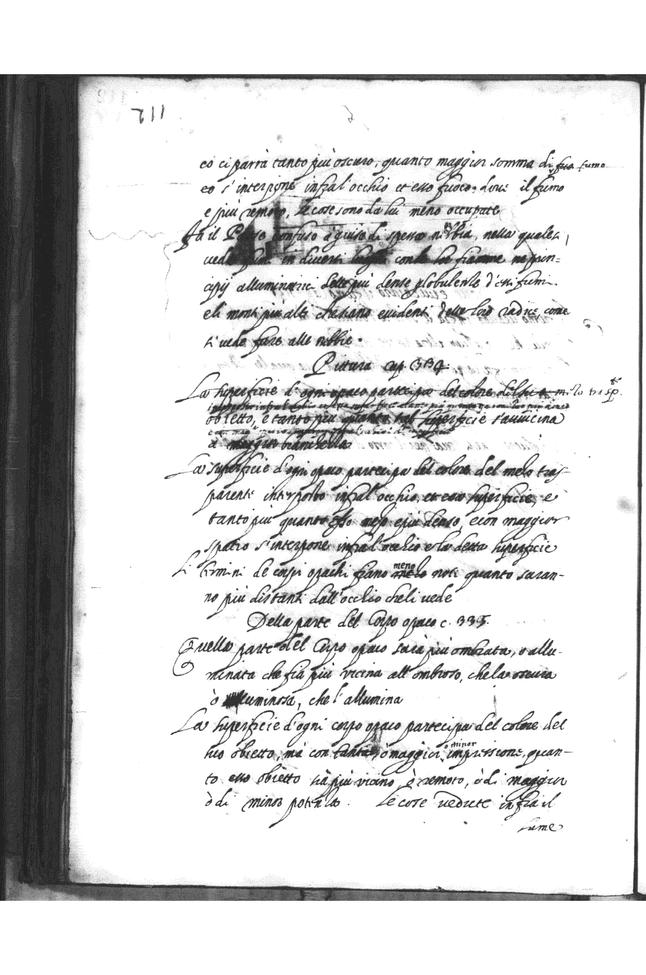 711
co ci parrà tanto più oscuro, quanto maggior somma di fumo
co s'interpone infra l'occhio et esso fuoco, dove il fumo
e più remoto, le cose sono da lui meno occupate
Fa il Paese confuso à guisa di spessa nebbia, nella quale si
veda fumi in diversi luoghi con le sue fiamme ne prin-
cipij alluminatrici delle più dense globulentie d'essi fumi
e li monti più alti siano evidenti delle loro radice, come
si vede fare alle nebbie.
Pittura cap. 334.
La superficie d'ogni opaco partecipa del colore del mezo trasp.te
obietto, e tanto più quanto tal superficie s'avvicina
à maggior bianchezza
La superficie d'ogni opaco partecipa del colore del mezo tras-
parente interposto infra l'occhio et essa superficie, e
tanto più quanto esso mezo è più denso, e con maggior
spatio s'interpone infra l'occhio e la detta superficie
Li termini de corpi opachi fiano meno noti quanto saran-
no più distanti dall'occhio che li vede
Della parte del Corpo opaco c. 335.
Quella parte del Corpo opaco sarà più ombrata, o allu-
minata che fia più vicina all'ombroso, che la oscura
ò luminosa, che l'allumina
La superficie d'ogni corpo opaco partecipa del colore del
suo obietto, ma con tanta ò maggior, o minor impressione, quan-
to esso obietto sia più vicino, ò remoto, ò di maggior
ò di minor potentia. Le cose vedute infra il
lume